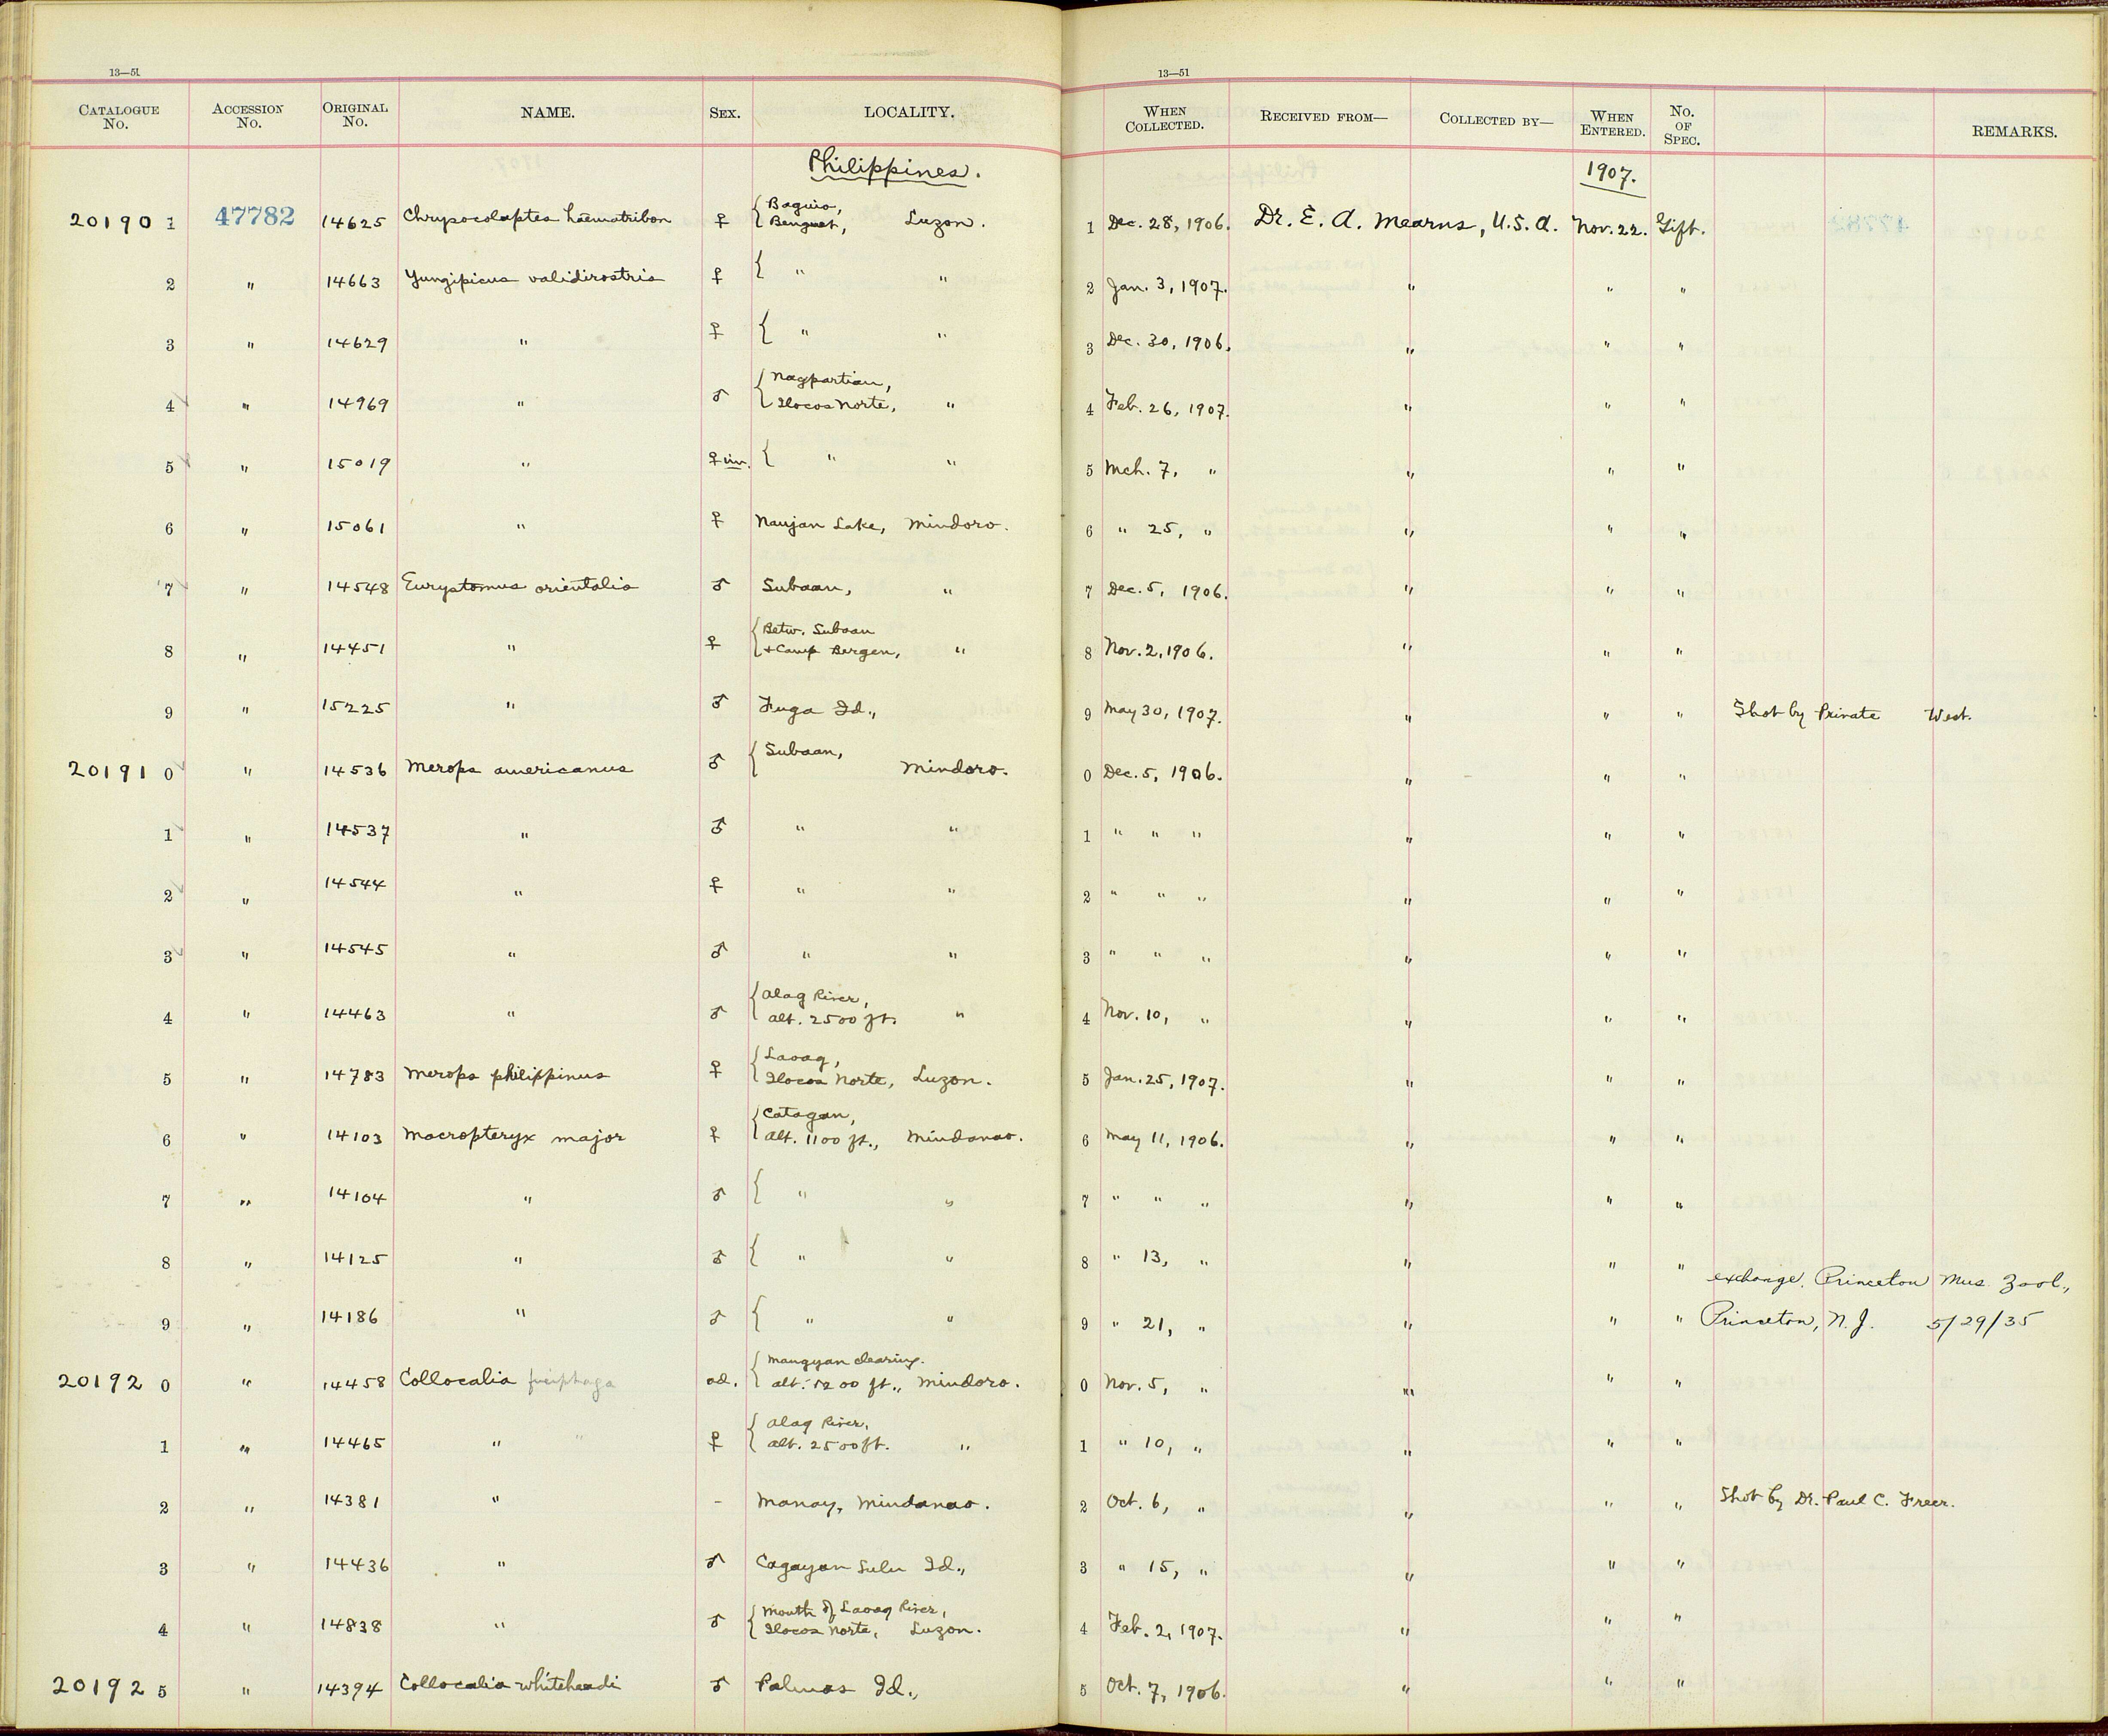 13—51
13—51
CATALOGUE No. ACCESSION No. ORIGINAL No. NAME. SEX. LOCALITY. WHEN COLLECTED. RECEIVED FROM— COLLECTED BY— WHEN ENTERED. No. OF SPEC. REMARKS.
Philippines. 1907.
20190 1 47782 14625 Chrysocolaptes haematribon ♀ { Baguio, Benguet, Luzon. 1 Dec. 28, 1906. Dr. E. A. Mearns, U.S.A. Nov. 22. Gift.
2 " 14663 Yungipicus validirostris ♀ { " " 2 Jan. 3, 1907. " " "
3 " 14629 " ♀ { " " 3 Dec. 30, 1906. " " "
4 " 14969 " ♂ { Nagpartian, Ilocos Norte, " 4 Feb. 26, 1907. " " "
5 " 15019 " ♀ im. { " " 5 Mch. 7, " " " "
6 " 15061 " ♀ Naujan Lake, Mindoro. 6 " 25, " " " "
7 " 14548 Eurystomus orientalis ♂ Subaan, " 7 Dec. 5, 1906. " " "
8 " 14451 " ♀ { Betw. Subaan + Camp Bergen, " 8 Nov. 2, 1906. " " "
9 " 15225 " ♂ Fuga Id., 9 May 30, 1907. " " " Shot by Private West.
20191 0 " 14536 Merops americanus ♂ { Subaan, Mindoro. 0 Dec. 5, 1906. " " "
1 " 14537 " ♂ " " 1 " " " " " "
2 " 14544 " ♀ " " 2 " " " " " "
3 " 14545 " ♂ " " 3 " " " " " "
4 " 14463 " ♂ { Alag River, alt. 2500 ft. " 4 Nov. 10, " " " "
5 " 14783 Merops philippinus ♀ { Laoag, Ilocos Norte, Luzon. 5 Jan. 25, 1907. " " "
6 " 14103 Macropteryx major ♀ { Catagan, alt. 1100 ft., Mindanao. 6 May 11, 1906. " " "
7 " 14104 " ♂ { " " 7 " " " " " "
8 " 14125 " ♂ { " " 8 " 13, " " " "
exchange. Princeton Mus. Zool.,
9 " 14186 " ♂ { " " 9 " 21, " " " " Princeton, N.J. 5/29/35
20192 0 " 14458 Collocalia fuciphaga ad. { Mangyan clearing. alt. 5200 ft., Mindoro. 0 Nov. 5, " " " "
1 " 14465 " " ♀ { Alag River, alt. 2500 ft. " 1 " 10, " " " "
2 " 14381 " - Manay, Mindanao. 2 Oct. 6, " " " " Shot by Dr. Paul C. Freer.
3 " 14436 " ♂ Cagayan Sulu Id., 3 " 15, " " " "
4 " 14838 " ♂ { Mouth of Laoag River, Ilocos Norte, Luzon. 4 Feb. 2, 1907. " " "
20192 5 " 14394 Collocalia whiteheadi ♂ Palmas Id., 5 Oct. 7, 1906. " " "